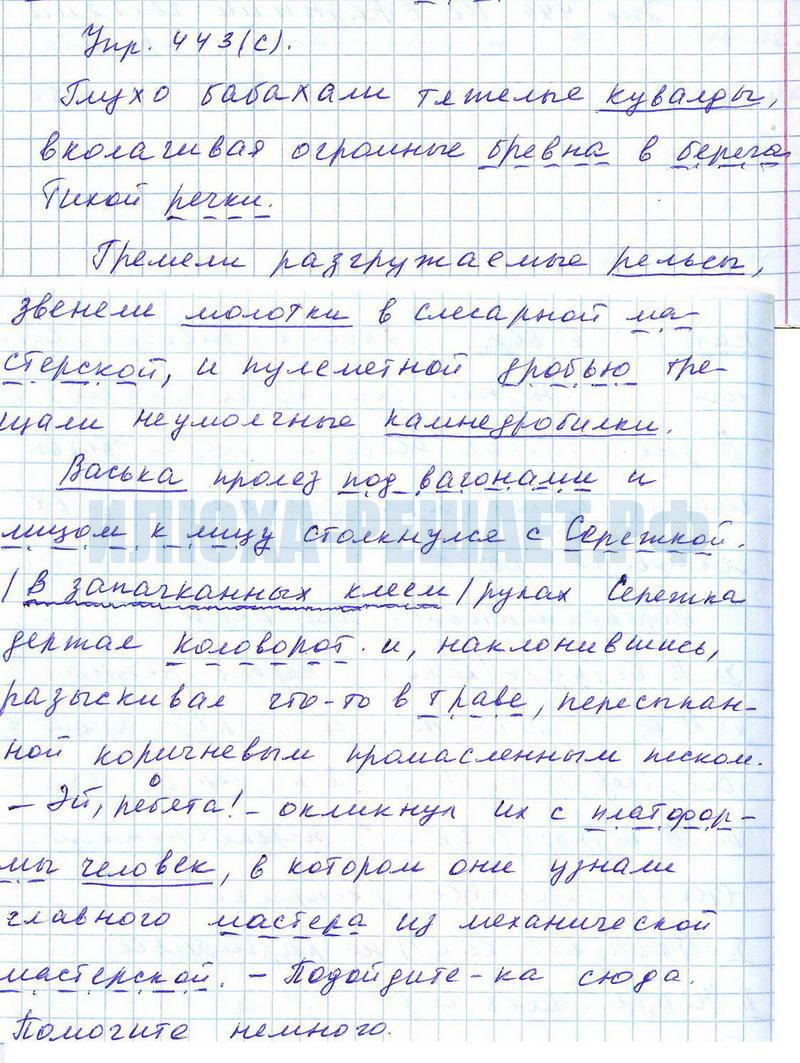 Упр. 443(с).
Глухо бабахали тяжелые кувалды,
вколачивая огромные бревна в берега
тихой речки.
Гремели разгружаемые рельсы,
звенели молотки в слесарной ма-
стерской, и пулеметной дробью тре-
щали неумолчные камнедробилки.
Васька пролез под вагонами и
лицом к лицу столкнулся с Сережкой.
/В запачканных клеем/ руках Сережка
держал коловорот и, наклонившись,
разыскивал что-то в траве, пересыпан-
ной коричневым промасленным песком.
– Эй, ребята! – окликнул их с платфор-
мы человек, в котором они узнали
главного мастера из механической
мастерской. – Подойдите-ка сюда.
Помогите немного.
ИЛЮХА РЕШАЕТ.РФ